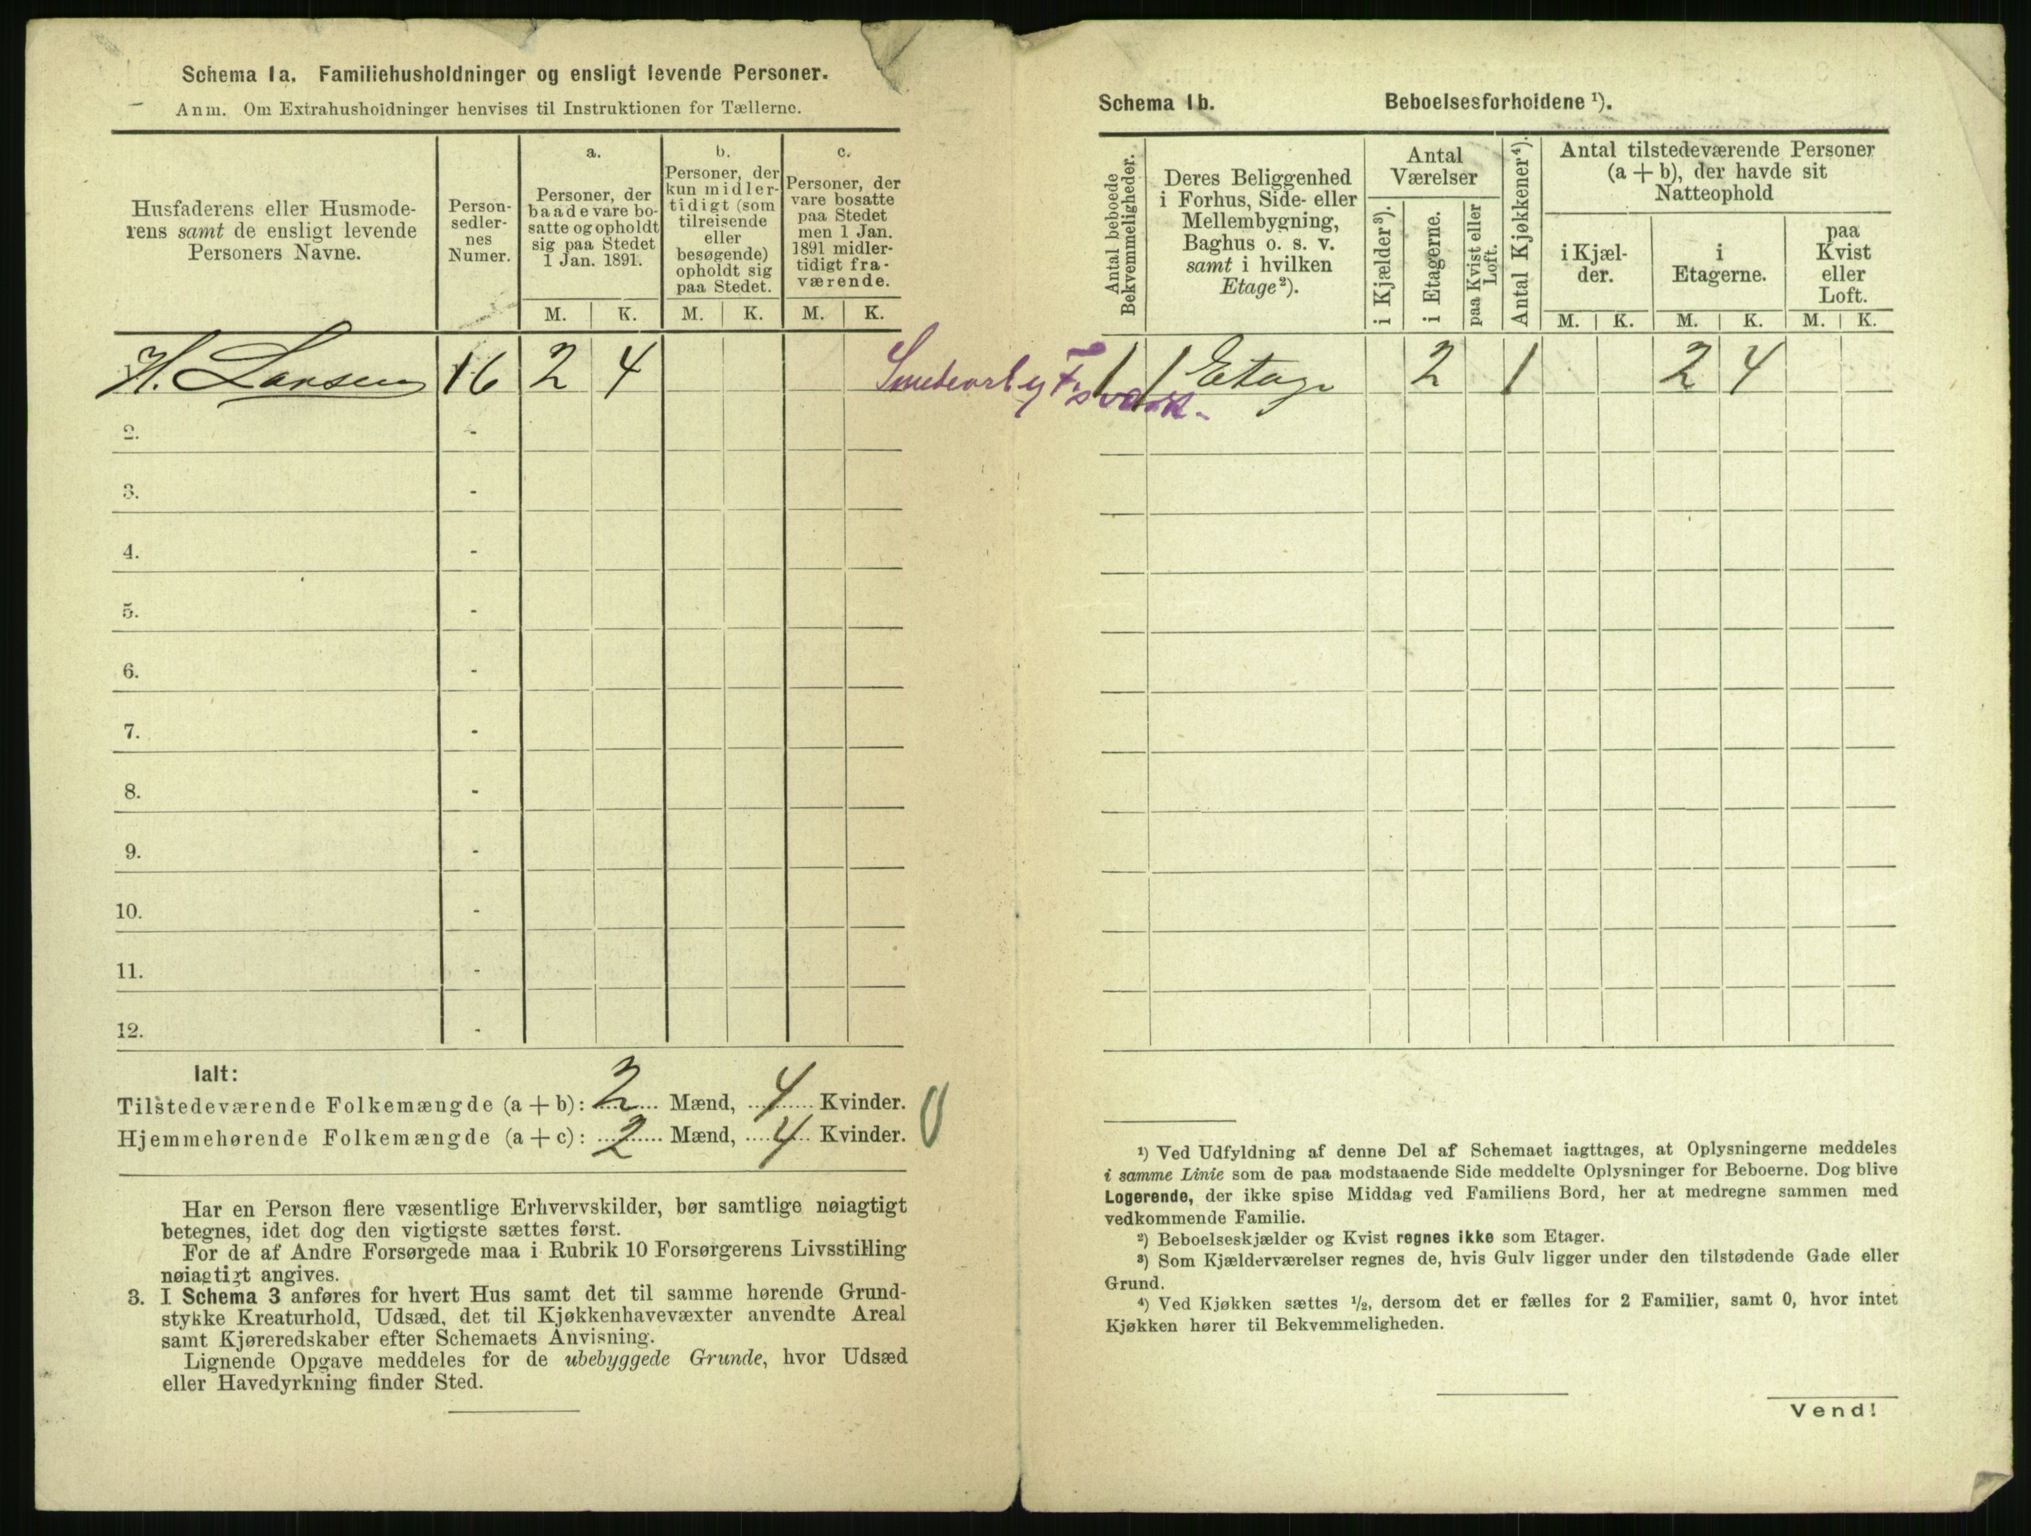 Schema 1a. Familiehusholdninger og ensligt levende Personer.
Anm. Om Extrahusholdninger henvises til Instruktionen for Tællerne.
Husfaderens eller Husmode-
rens samt de ensligt levende
Personers Navne.
Person-
sedler-
nes
Numer.
a.
Personer, der
baade vare bo-
satte og opholdt
sig paa Stedet
1 Jan. 1891.
b.
Personer, der
kun midler-
tidigt (som
tilreisende
eller
besøgende)
opholdt sig
paa Stedet.
c.
Personer, der
vare bosatte
paa Stedet
men 1 Jan.
1891 midler-
tidigt fra-
værende.
M. K. M. K. M. K.
H. Larsen 16 2 4
2. -
3. -
4. -
5. -
6. -
7. -
8. -
9. -
10. -
11. -
12. -
Ialt:
Tilstedeværende Folkemængde (a + b): 2 Mænd, 4 Kvinder.
Hjemmehørende Folkemængde (a + c): 2 Mænd, 4 Kvinder. 0
Har en Person flere væsentlige Erhvervskilder, bør samtlige nøiagtigt
betegnes, idet dog den vigtigste sættes først.
For de af Andre Forsørgede maa i Rubrik 10 Forsørgerens Livsstilling
nøiagtigt angives.
3. I Schema 3 anføres for hvert Hus samt det til samme hørende Grund-
stykke Kreaturhold, Udsæd, det til Kjøkkenhavevæxter anvendte Areal
samt Kjøreredskaber efter Schemaets Anvisning.
Lignende Opgave meddeles for de ubebyggede Grunde, hvor Udsæd
eller Havedyrkning finder Sted.
Schema 1b. Beboelsesforholdene ¹).
Antal beboede
Bekvemmeligheder.
Deres Beliggenhed
i Forhus, Side- eller
Mellembygning,
Baghus o. s. v.
samt i hvilken
Etage²).
Antal
Værelser
i Kjælder³).
i Etagerne.
paa Kvist eller
Loft.
Antal Kjøkkener⁴).
Antal tilstedeværende Personer
(a + b), der havde sit
Natteophold
i Kjæl-
der.
i
Etagerne.
paa
Kvist
eller
Loft.
M. K. M. K. M. K.
1 1 Etage 2 1 2 4
¹) Ved Udfyldning af denne Del af Schemaet iagttages, at Oplysningerne meddeles
i samme Linie som de paa modstaaende Side meddelte Oplysninger for Beboerne. Dog blive
Logerende, der ikke spise Middag ved Familiens Bord, her at medregne sammen med
vedkommende Familie.
²) Beboelseskjælder og Kvist regnes ikke som Etager.
³) Som Kjælderværelser regnes de, hvis Gulv ligger under den tilstødende Gade eller
Grund.
⁴) Ved Kjøkken sættes ½, dersom det er fælles for 2 Familier, samt 0, hvor intet
Kjøkken hører til Bekvemmeligheden.
Vend!